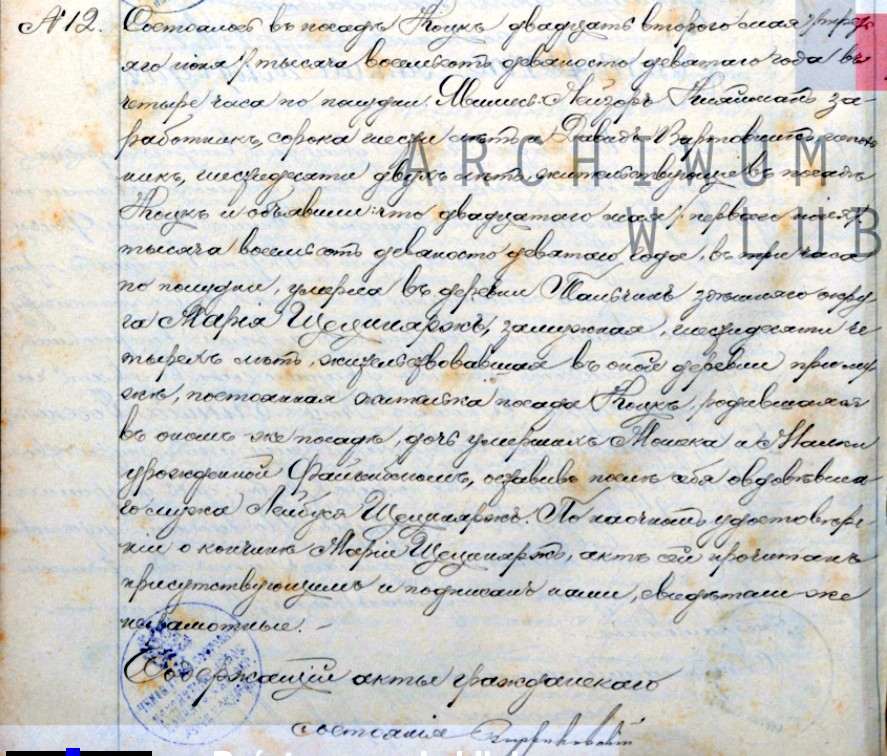 № 12.
Состоялось въ посадѣ Коцкъ двадцать второго мая /треть
яго іюня/ тысяча восемьсотъ девяносто девятаго года въ
четыре часа по полудни. Явились: Лейзоръ за-
работникъ, сорока шести лѣтъ и Давидъ
никъ, шестидесяти двухъ лѣтъ жительствующіе въ посадѣ
Коцкъ и объявили: что двадцатаго мая /перваго іюня/
тысяча восемьсотъ девяносто девятаго года, въ три часа
по полудни, умерла въ деревни Тальчинъ здѣшняго окру-
га Марія замужная, шестидесяти че
тырехъ лѣтъ, жительствовавшая въ оной деревни при му-
жѣ, постоянная жителька посада Коцкъ, родившаяся
въ ономъ же посадѣ, дочь умершихъ и Малки
урожденной оставивъ послѣ себя овдовѣвша-
го мужа Лейбуся По наочномъ удостовѣре-
ніи о кончинѣ Маріи актъ сей прочитанъ
присутствующимъ и подписанъ нами, свидѣтели же
неграмотные.
Содержащій акты гражданскаго
состоянія
ARCHIWUM
W LUB